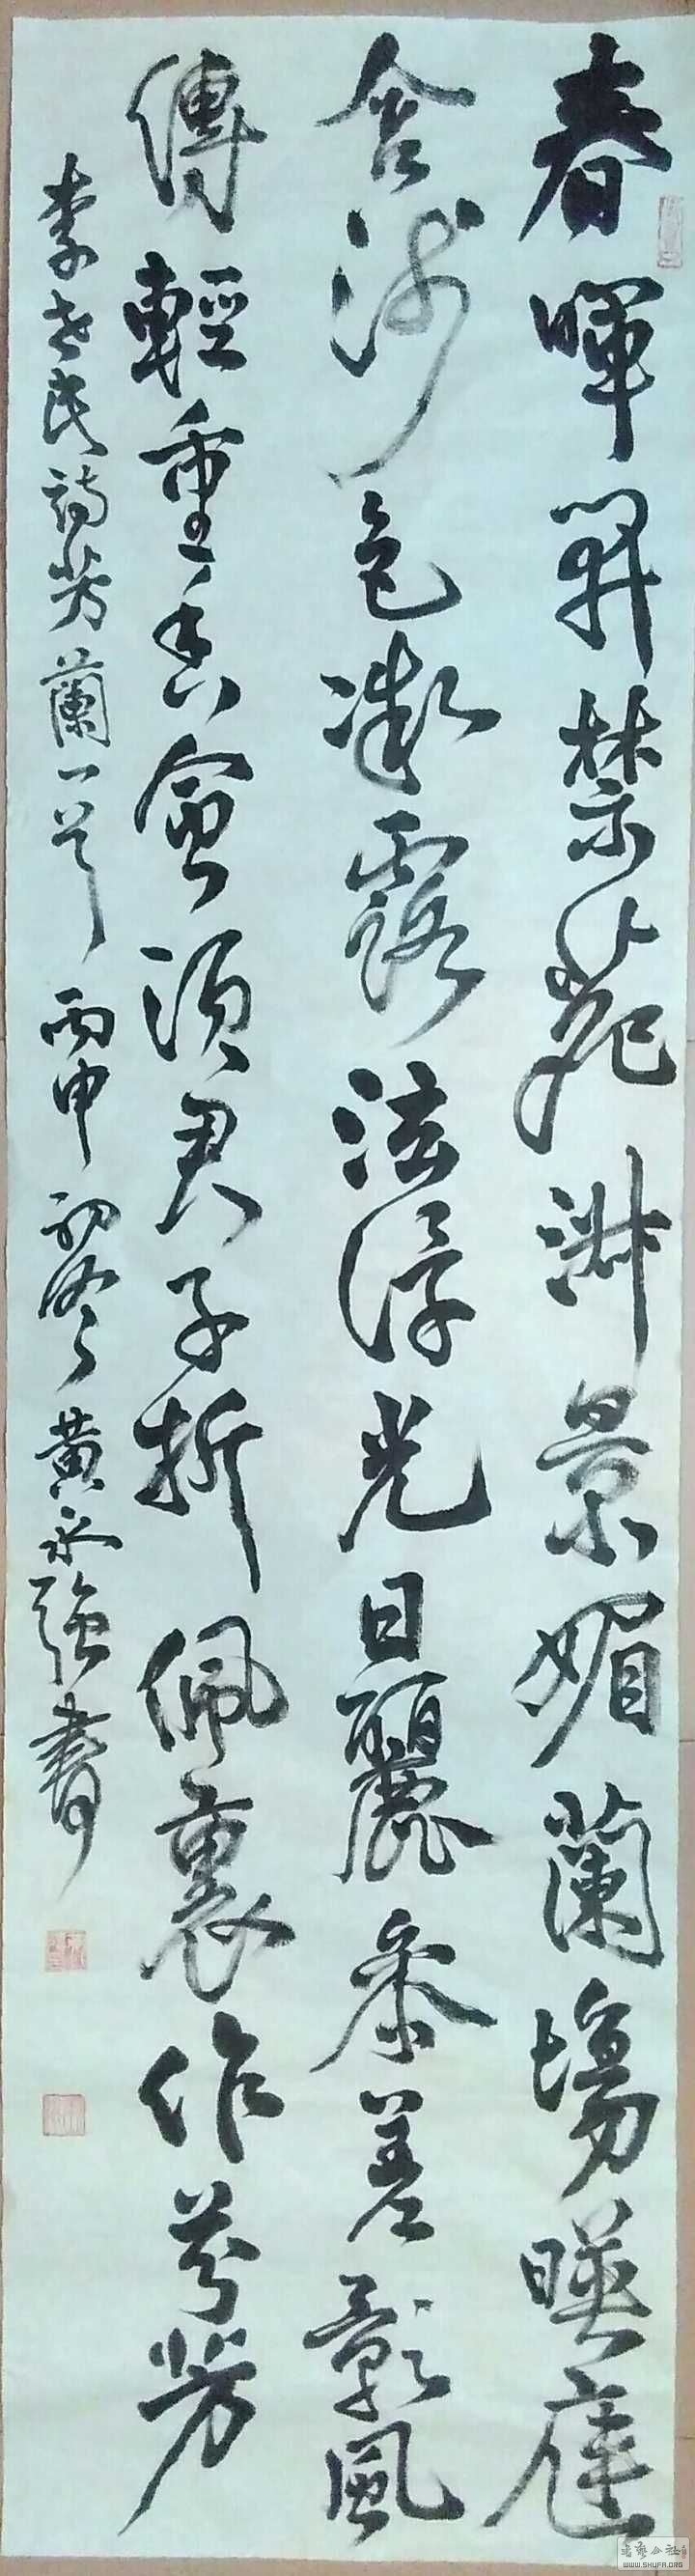 春暉開禁苑淑景媚蘭場暎庭
含淺色凝露泫浮光日麗參差影風
傳輕重香會須君子折佩裏作芬芳
李世民詩芳蘭一首 丙申初冬 黃永強書
書藝公社
WWW.SHUFA.ORG